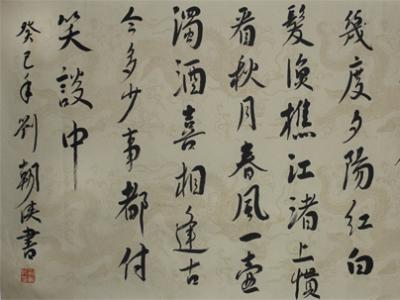 幾度夕陽紅白
髮漁樵江渚上慣
看秋月春風一壺
濁酒喜相逢古
今多少事都付
笑談中
癸巳年劉朝侠書